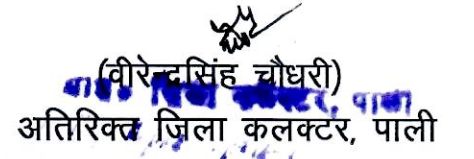 (वीरेन्द्रसिंह चौधरी)
अतिरिक्त जिला कलक्टर, पाली